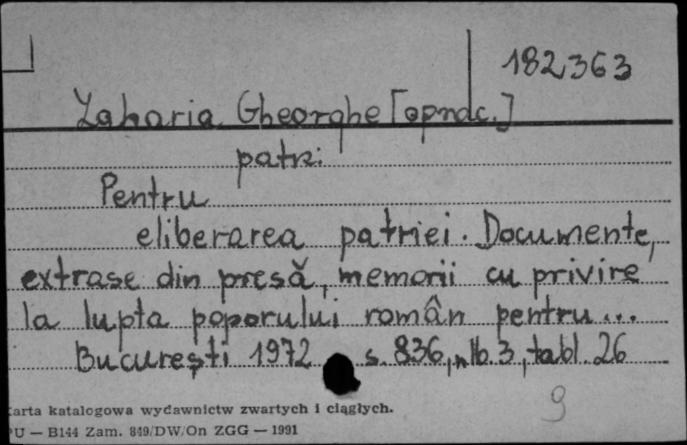 182363
Zaharia Gheorghe [oprac.]
patrz:
Pentru
eliberarea patriei. Documente,
extrase din presă, memorii cu privire
la lupta poporului român pentru...
București 1972 s. 836, nlb. 3, tabl. 26
9
Karta katalogowa wydawnictw zwartych i ciągłych.
PU — B144 Zam. 849/DW/On ZGG — 1991